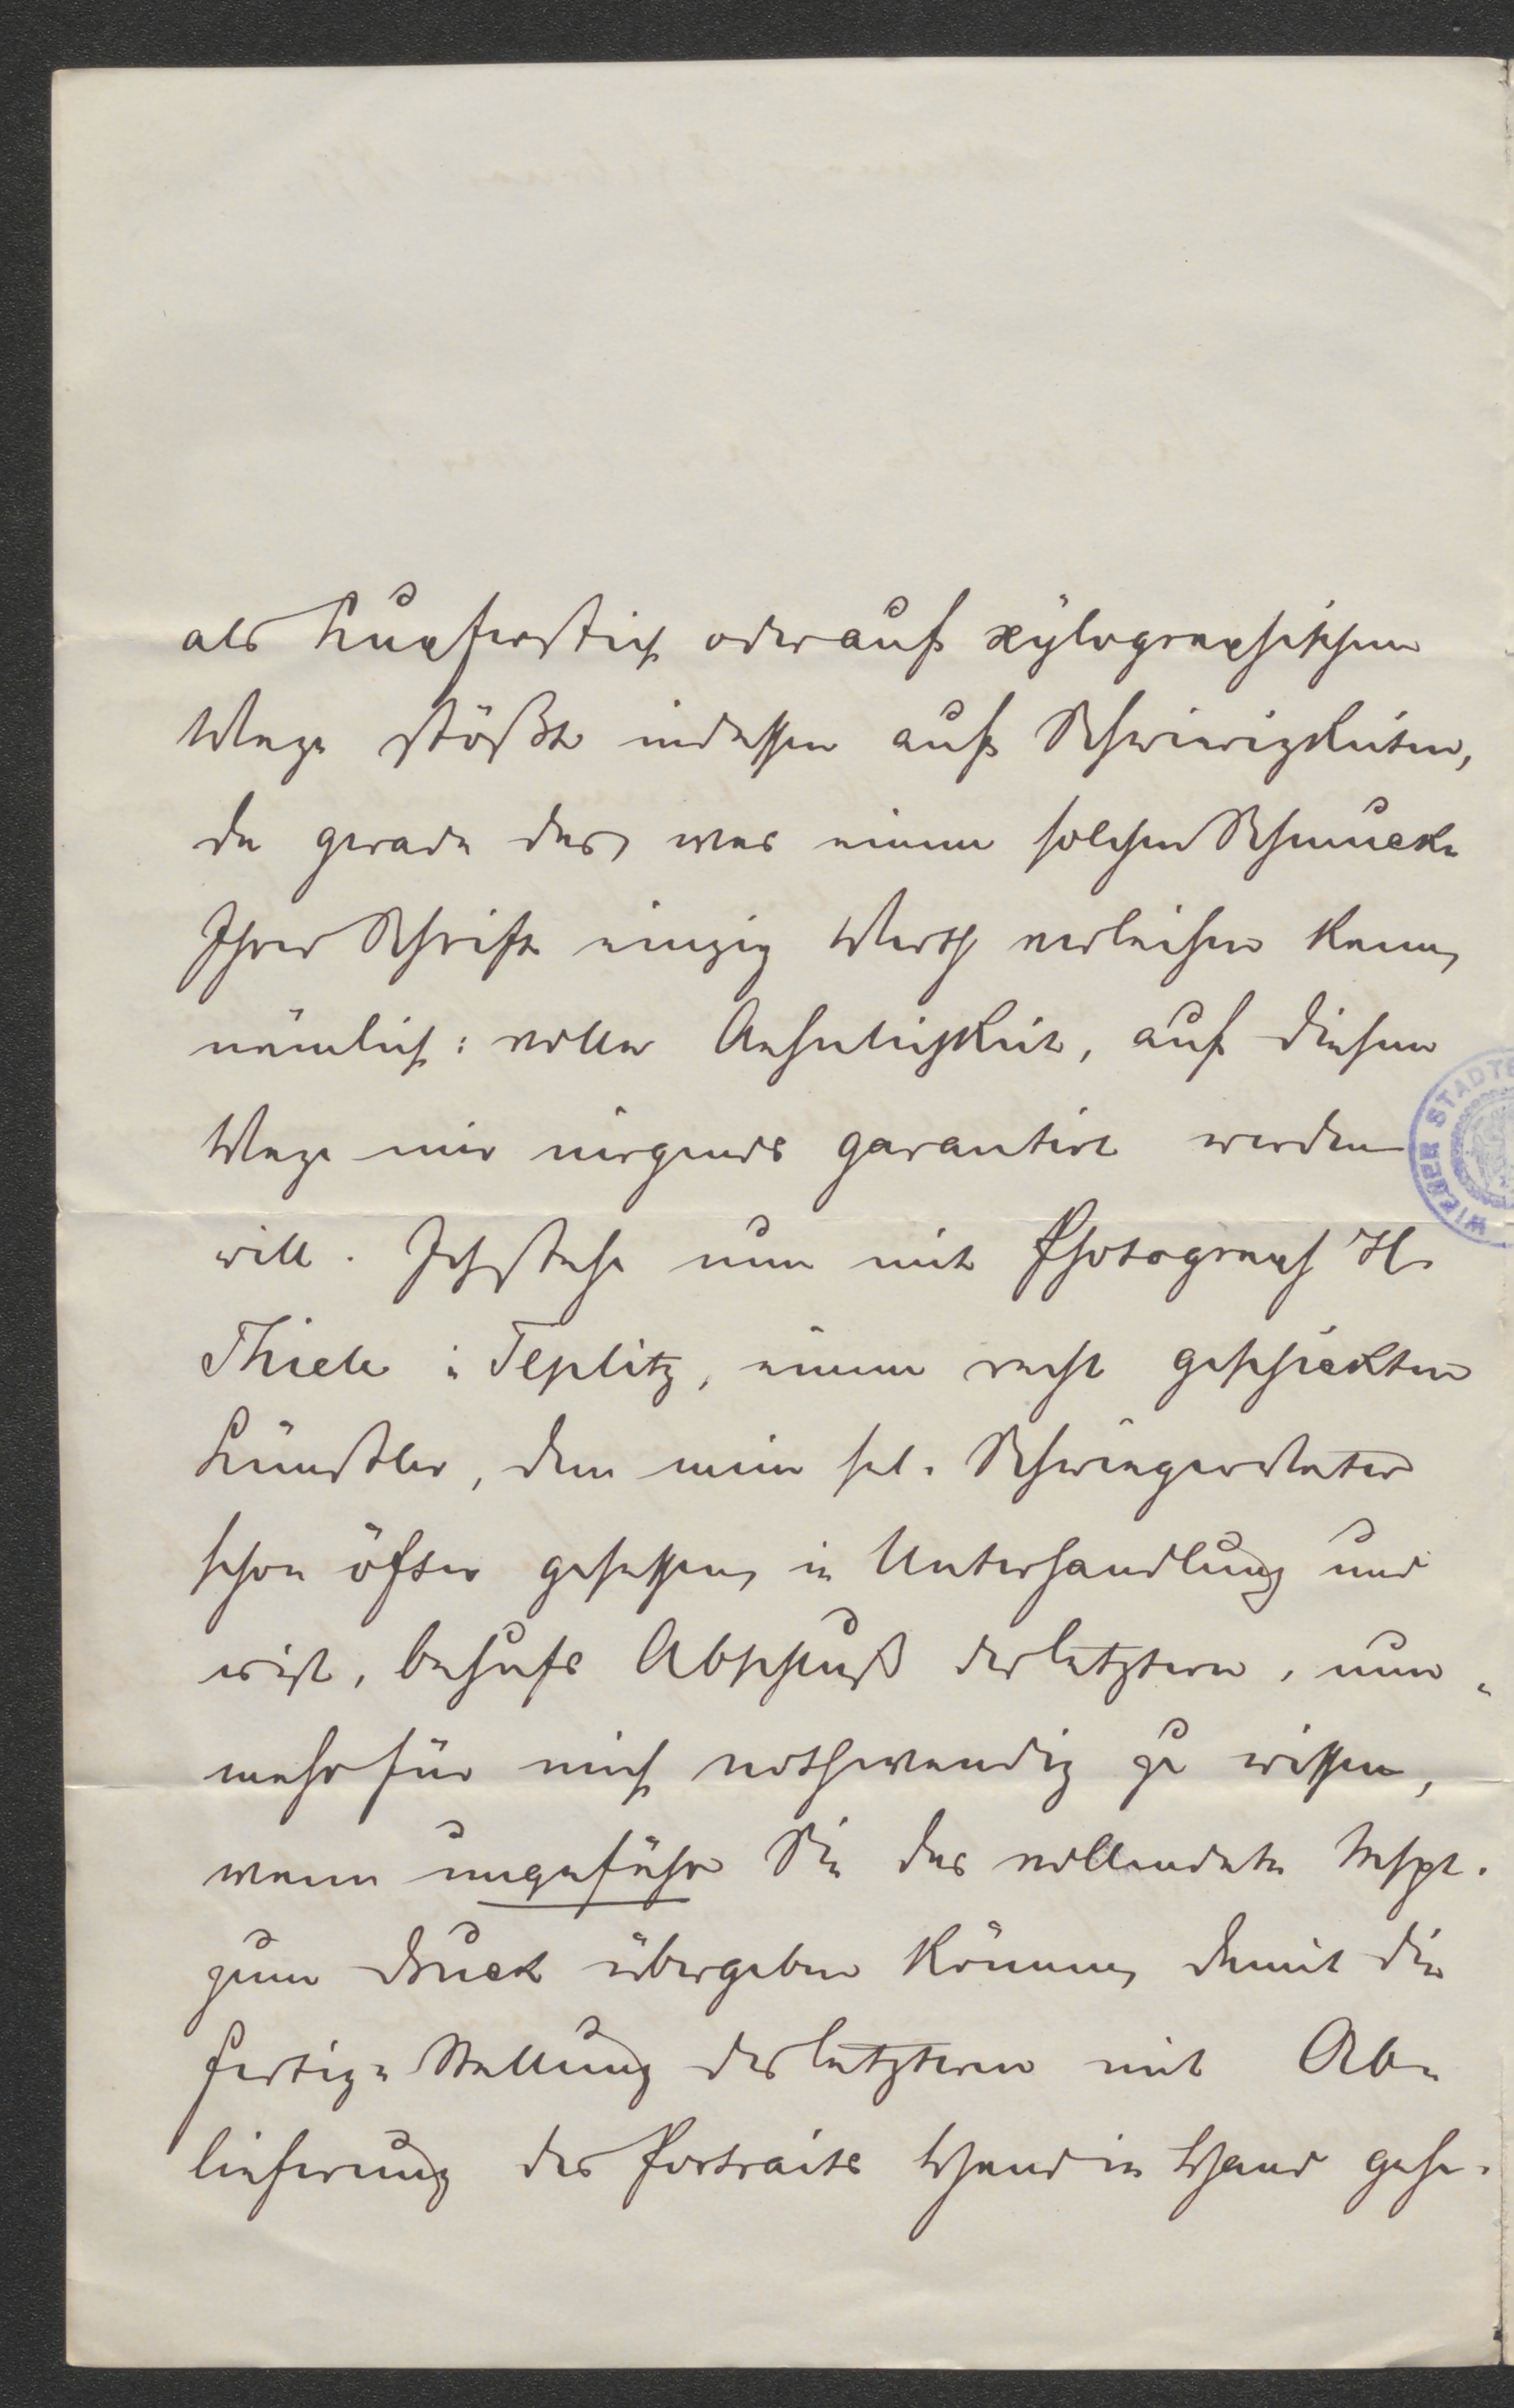 als Kupferstich oder auf xylographischem
Wege stößt indessen auf Schwierigkeiten,
da gerade das, was einem solchen Schmucke
Ihrer Schrift einzig Werth verleihen kann,
nämlich: volle Aehnlichkeit, auf diesem
Wege mir nirgends garantirt werden
will. Ich stehe nun mit Photograph H.
Thiele i Teplitz, einem recht geschickten
Künstler, dem mein sel. Schwiegervater
schon öfter gesessen, in Unterhandlung und
es ist, behufs Abschluß der letztern, nun-
mehr für mich nothwendig zu wissen,
wann ungefähr Sie das vollendete Mspt.
zum Druck übergeben können, damit die
Fertig-Stellung des letzteren mit Ab-
lieferung des Portraits Hand in Hand gehe.
WIENER STADTB